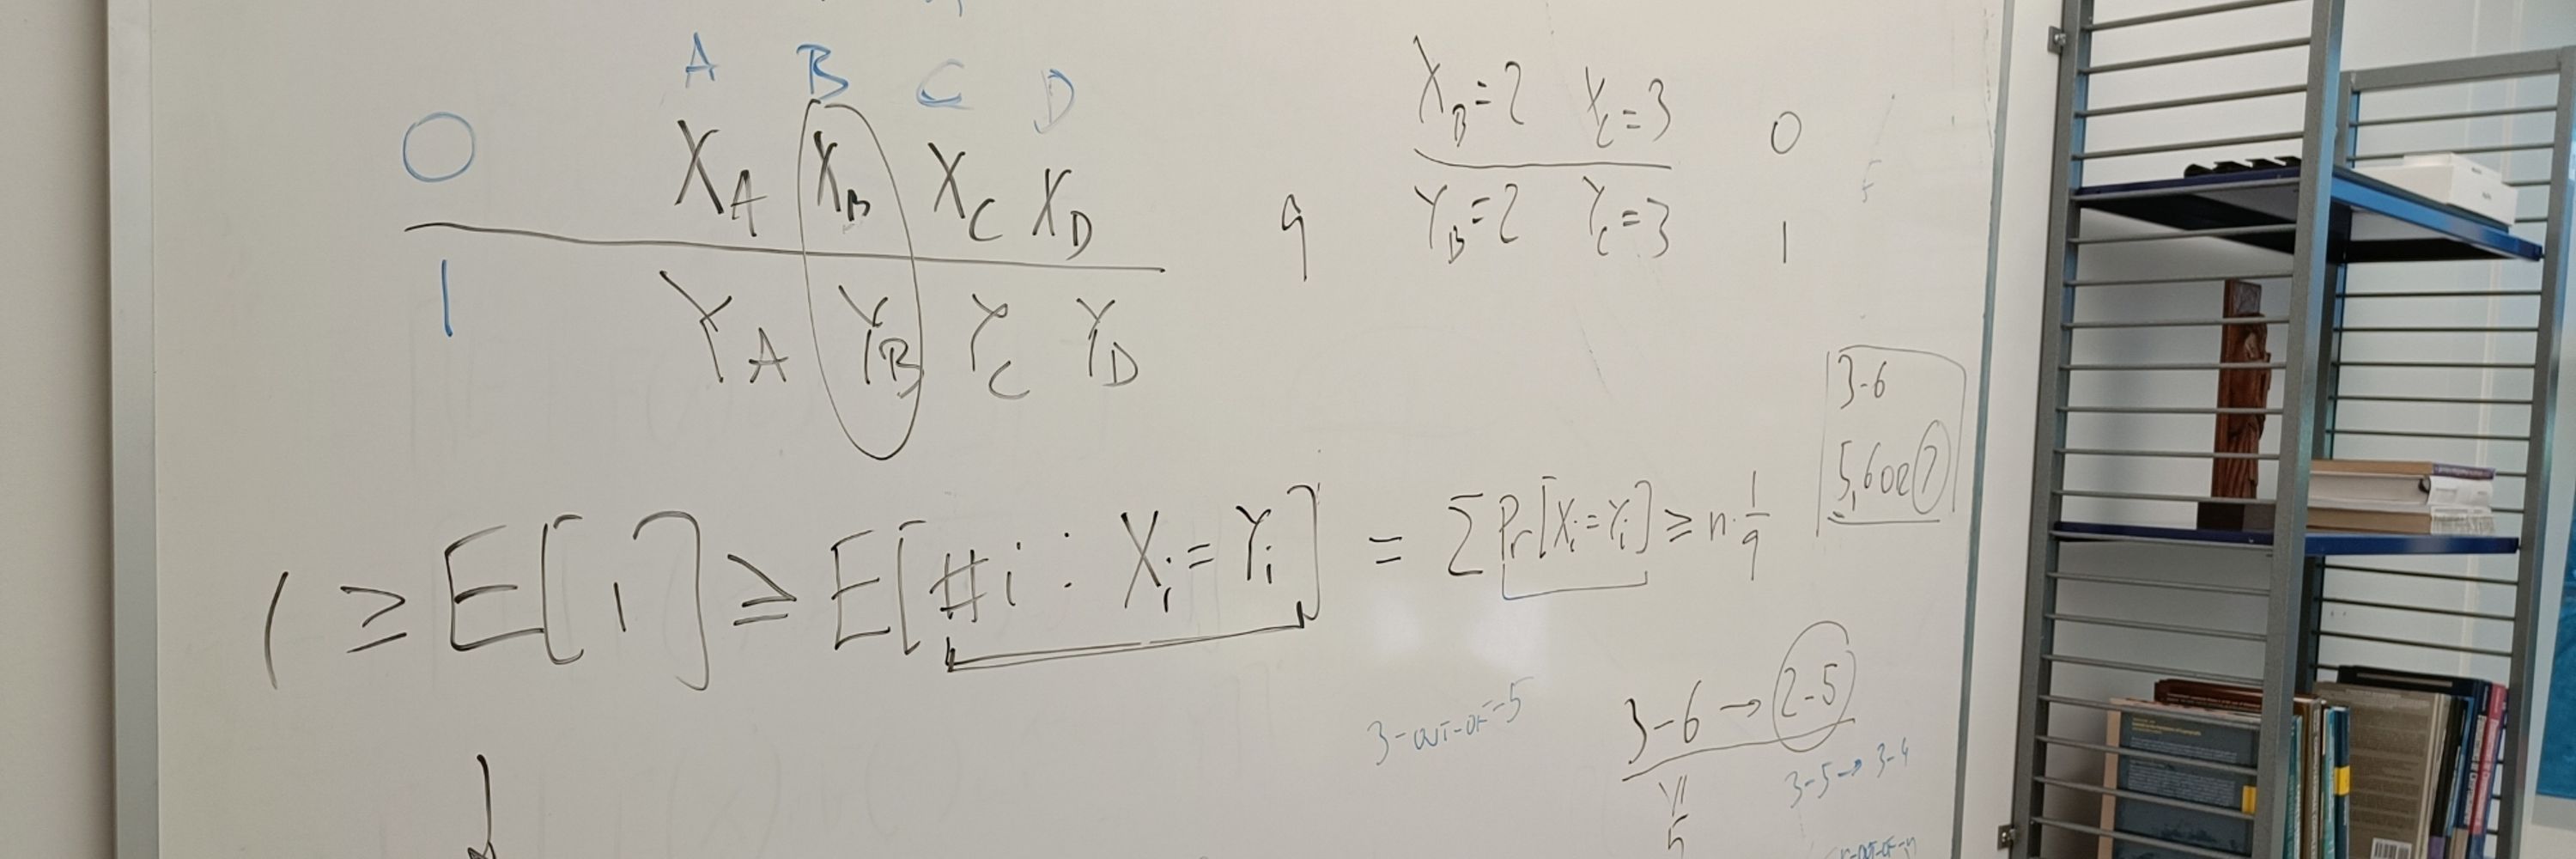 A B C D
0 X_A X_B X_C X_D
1 Y_A Y_B Y_C Y_D
X_B=2 X_C=3 0
9
Y_B=2 Y_C=3 1
3-6
5,6 or 7
1 ≥ E[1] ≥ E[#i : X_i = Y_i] = Σ Pr[X_i=Y_i] ≥ n·1/9
3-OUT-OF-5
3-6 → 2-5
3-5 → 3-4
5